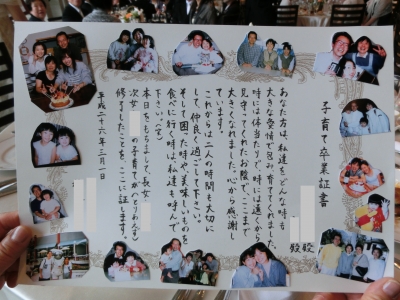 子育て卒業証書
殿
殿
あなた方は、私達をどんな時も
大きな愛情で包み育ててくれました。
時には体当たりで、時には遠くから
見守ってくれたお陰で、ここまで
大きくなれました。心から感謝し
ています。
これからは二人の時間も大切に
し、仲良く過ごして下さい。
そして困った時や、美味しいものを
食べに行く時は、私達も呼んで
下さい。(笑)
本日をもちまして、長女
次女 の子育てが(とりあえず)
修了したことを、ここに証します。
平成二十六年三月一日